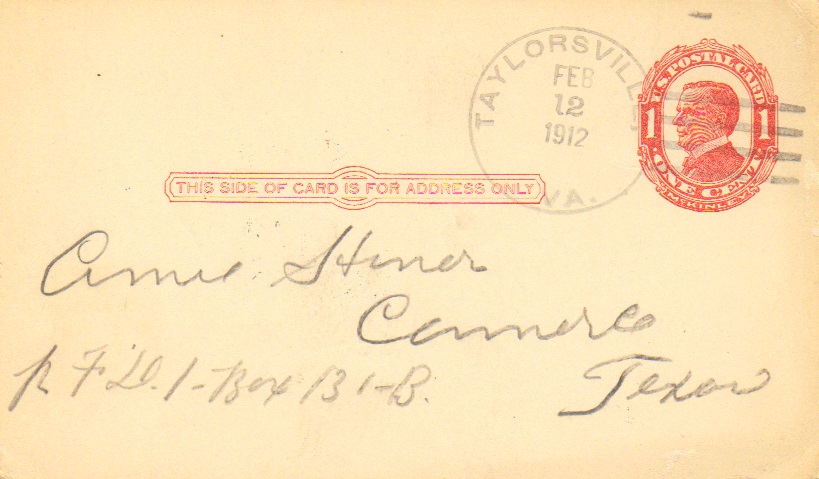 TAYLORSVILLE
FEB
12
1912
VA.
U.S. POSTAL CARD
1 1
ONE CENT
THIS SIDE OF CARD IS FOR ADDRESS ONLY
Amie Stiner
Comerce
Texas
R F D. 1 - Box 131-B.